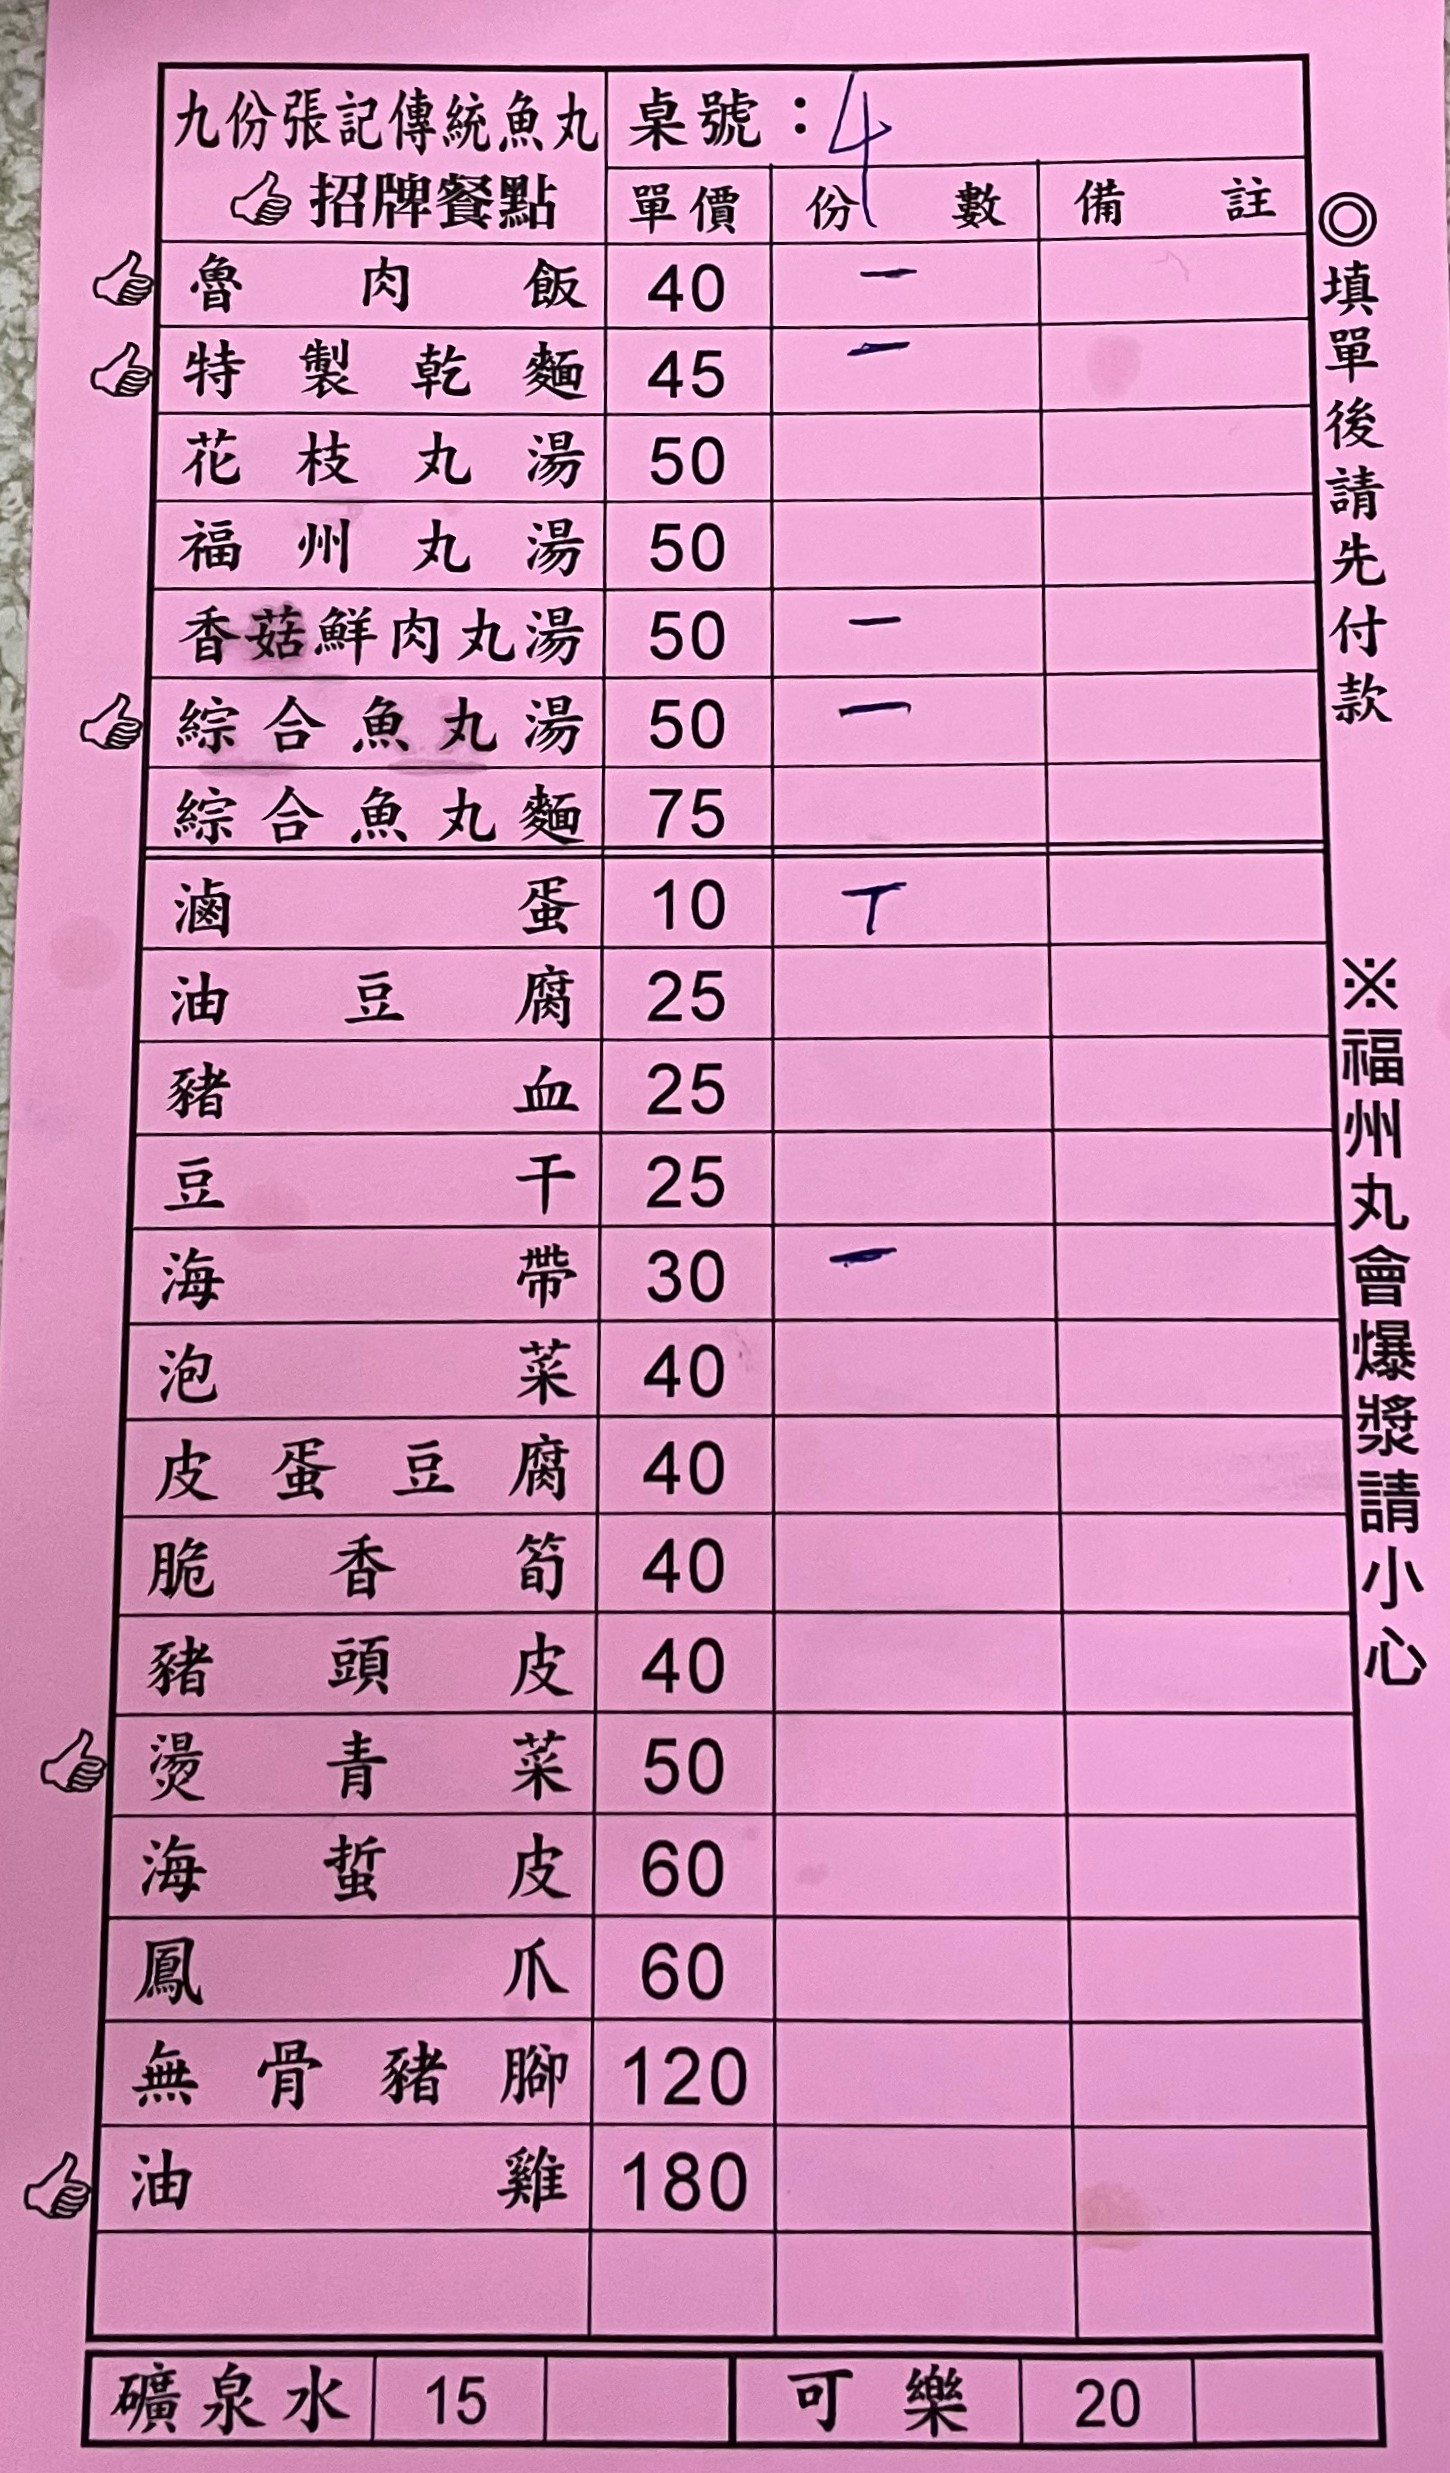 九份張記傳統魚丸 桌號：4
招牌餐點 單價 份數 備註
魯肉飯 40 一
特製乾麵 45 一
花枝丸湯 50
福州丸湯 50
香菇鮮肉丸湯 50 一
綜合魚丸湯 50 一
綜合魚丸麵 75
滷蛋 10 丅
油豆腐 25
豬血 25
豆干 25
海帶 30 一
泡菜 40
皮蛋豆腐 40
脆香筍 40
豬頭皮 40
燙青菜 50
海蜇皮 60
鳳爪 60
無骨豬腳 120
油雞 180
礦泉水 15 可樂 20
◎填單後請先付款
※福州丸會爆漿請小心